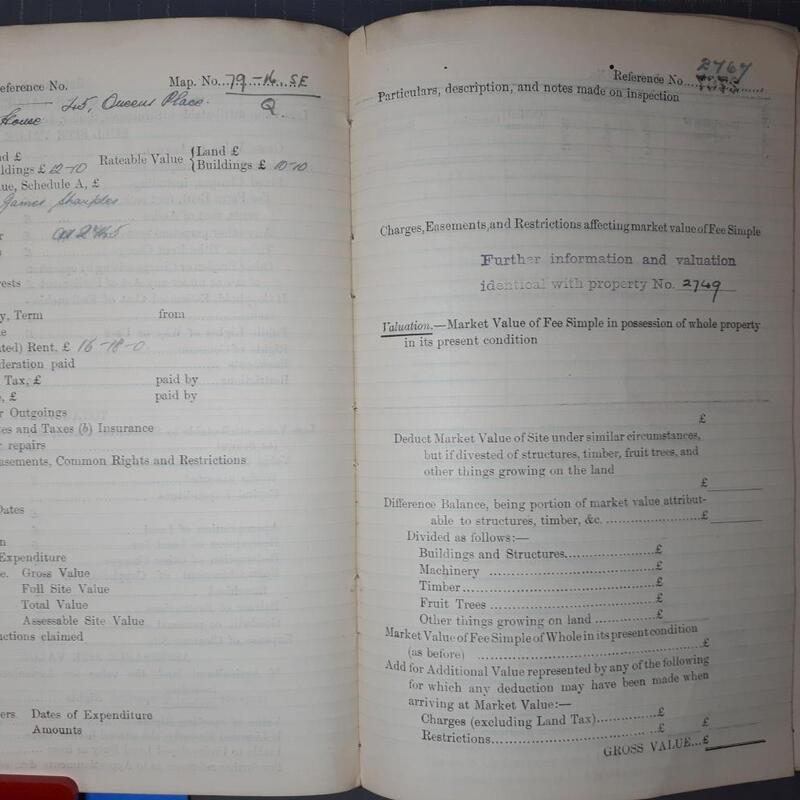 eference No. Map. No. 79-16. SE
45, Queens Place. Q
House
nd £
ldings £ 12-10 Rateable Value {Land £
{Buildings £ 10-10
ue, Schedule A, £
James Sharples
r
s
rests
y, Term from
e
ated) Rent, £ 16-18-0
deration paid
Tax, £ paid by
, £ paid by
r Outgoings
tes and Taxes (b) Insurance
r repairs
asements, Common Rights and Restrictions
Dates
n
Expenditure
e. Gross Value
Full Site Value
Total Value
Assessable Site Value
uctions claimed
ers Dates of Expenditure
Amounts
Reference No. 2767
Particulars, description, and notes made on inspection
Charges, Easements, and Restrictions affecting market value of Fee Simple
Further information and valuation
identical with property No. 2749
Valuation.—Market Value of Fee Simple in possession of whole property
in its present condition
£
Deduct Market Value of Site under similar circumstances,
but if divested of structures, timber, fruit trees, and
other things growing on the land
£
Difference Balance, being portion of market value attribut-
able to structures, timber, &c. £
Divided as follows:—
Buildings and Structures £
Machinery £
Timber £
Fruit Trees £
Other things growing on land £
Market Value of Fee Simple of Whole in its present condition
(as before) £
Add for Additional Value represented by any of the following
for which any deduction may have been made when
arriving at Market Value:—
Charges (excluding Land Tax) £
Restrictions £ £
GROSS VALUE... £